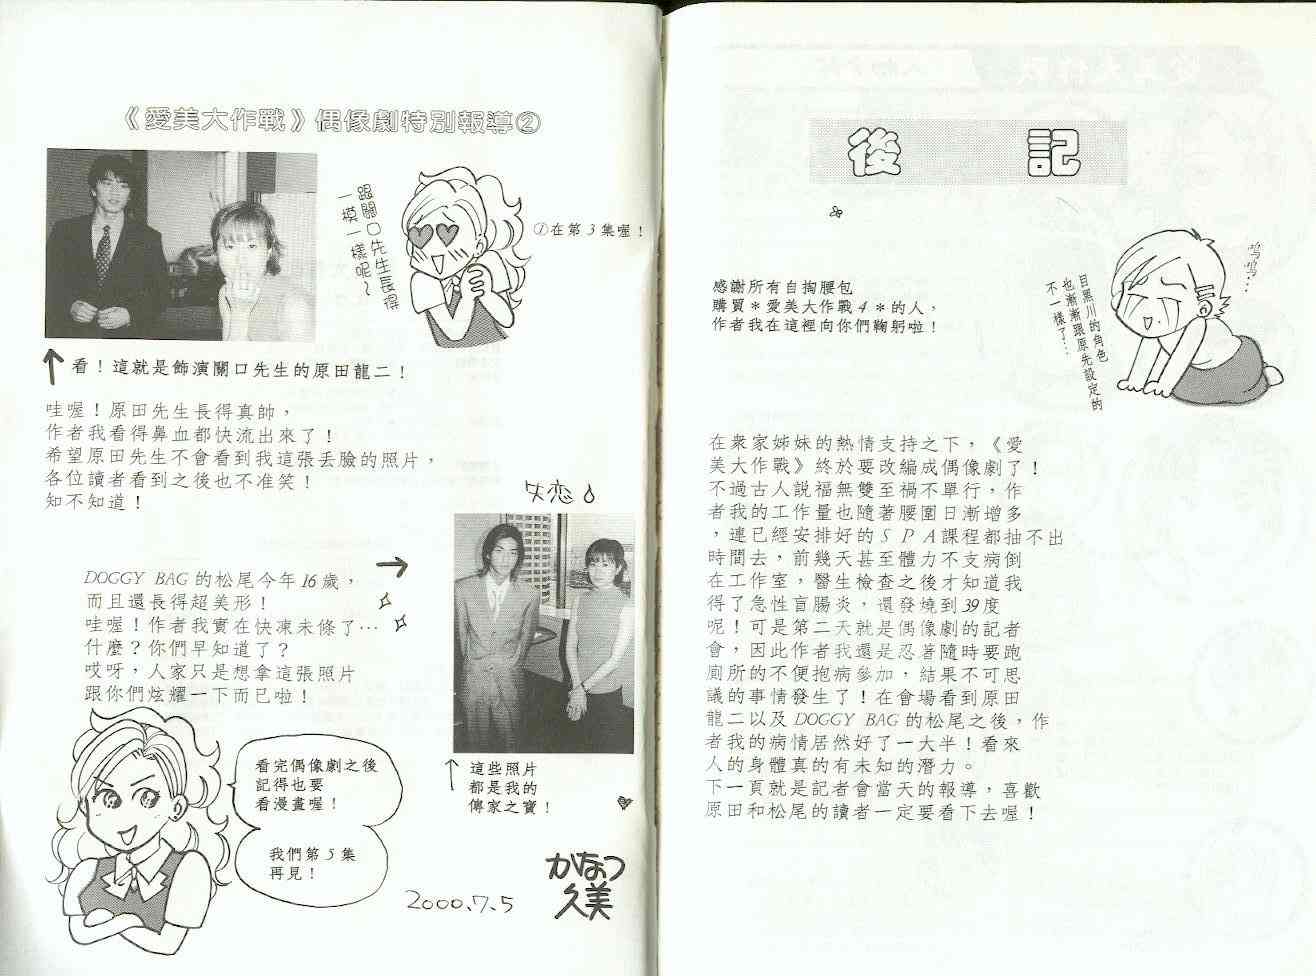 後　記
感謝所有自掏腰包
購買＊愛美大作戰4＊的人，
作者我在這裡向你們鞠躬啦！
嗚嗚…
目黑川的角色
也漸漸跟原先設定的
不一樣了…
在衆家姊妹的熱情支持之下，《愛
美大作戰》終於要改編成偶像劇了！
不過古人說福無雙至禍不單行，作
者我的工作量也隨著腰圍日漸增多
，連已經安排好的ＳＰＡ課程都抽不出
時間去，前幾天甚至體力不支病倒
在工作室，醫生檢查之後才知道我
得了急性盲腸炎，還發燒到39度
呢！可是第二天就是偶像劇的記者
會，因此作者我還是忍著隨時要跑
廁所的不便抱病參加，結果不可思
議的事情發生了！在會場看到原田
龍二以及DOGGY BAG的松尾之後，作
者我的病情居然好了一大半！看來
人的身體真的有未知的潛力。
下一頁就是記者會當天的報導，喜歡
原田和松尾的讀者一定要看下去喔！
《愛美大作戰》偶像劇特別報導②
跟關口先生長得
一模一樣呢～
①在第3集喔！
看！這就是飾演關口先生的原田龍二！
哇喔！原田先生長得真帥，
作者我看得鼻血都快流出來了！
希望原田先生不會看到我這張丟臉的照片，
各位讀者看到之後也不准笑！
知不知道！
失恋
DOGGY BAG的松尾今年16歲，
而且還長得超美形！
哇喔！作者我實在快凍未條了…
什麼？你們早知道了？
哎呀，人家只是想拿這張照片
跟你們炫耀一下而已啦！
這些照片
都是我的
傳家之寶！
看完偶像劇之後
記得也要
看漫畫喔！
我們第5集
再見！
2000.7.5
かなつ
久美